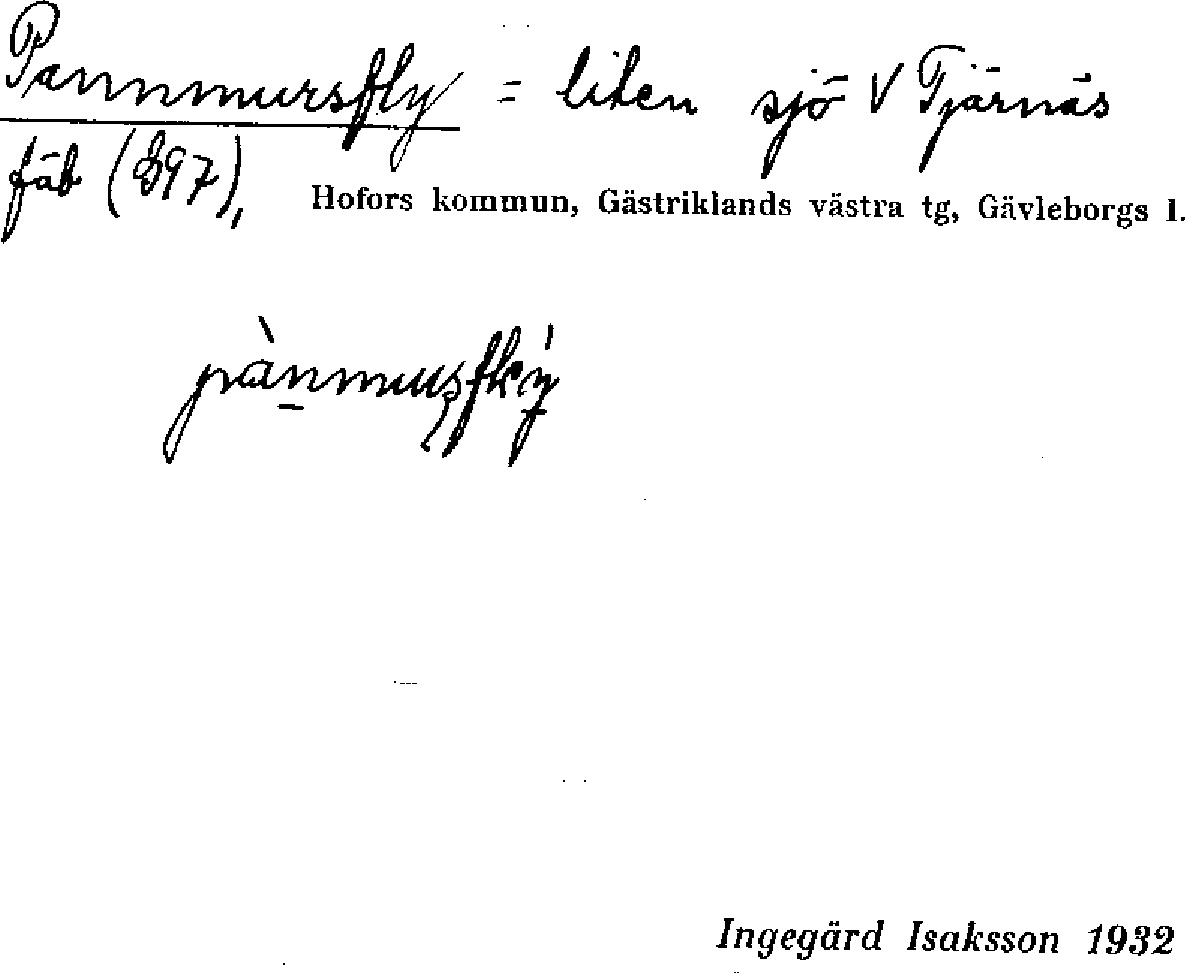 Pannmursfly = liten sjö V Tjärnäs
fäb (897), Hofors kommun, Gästriklands västra tg, Gävleborgs l.
Ingegärd Isaksson 1932